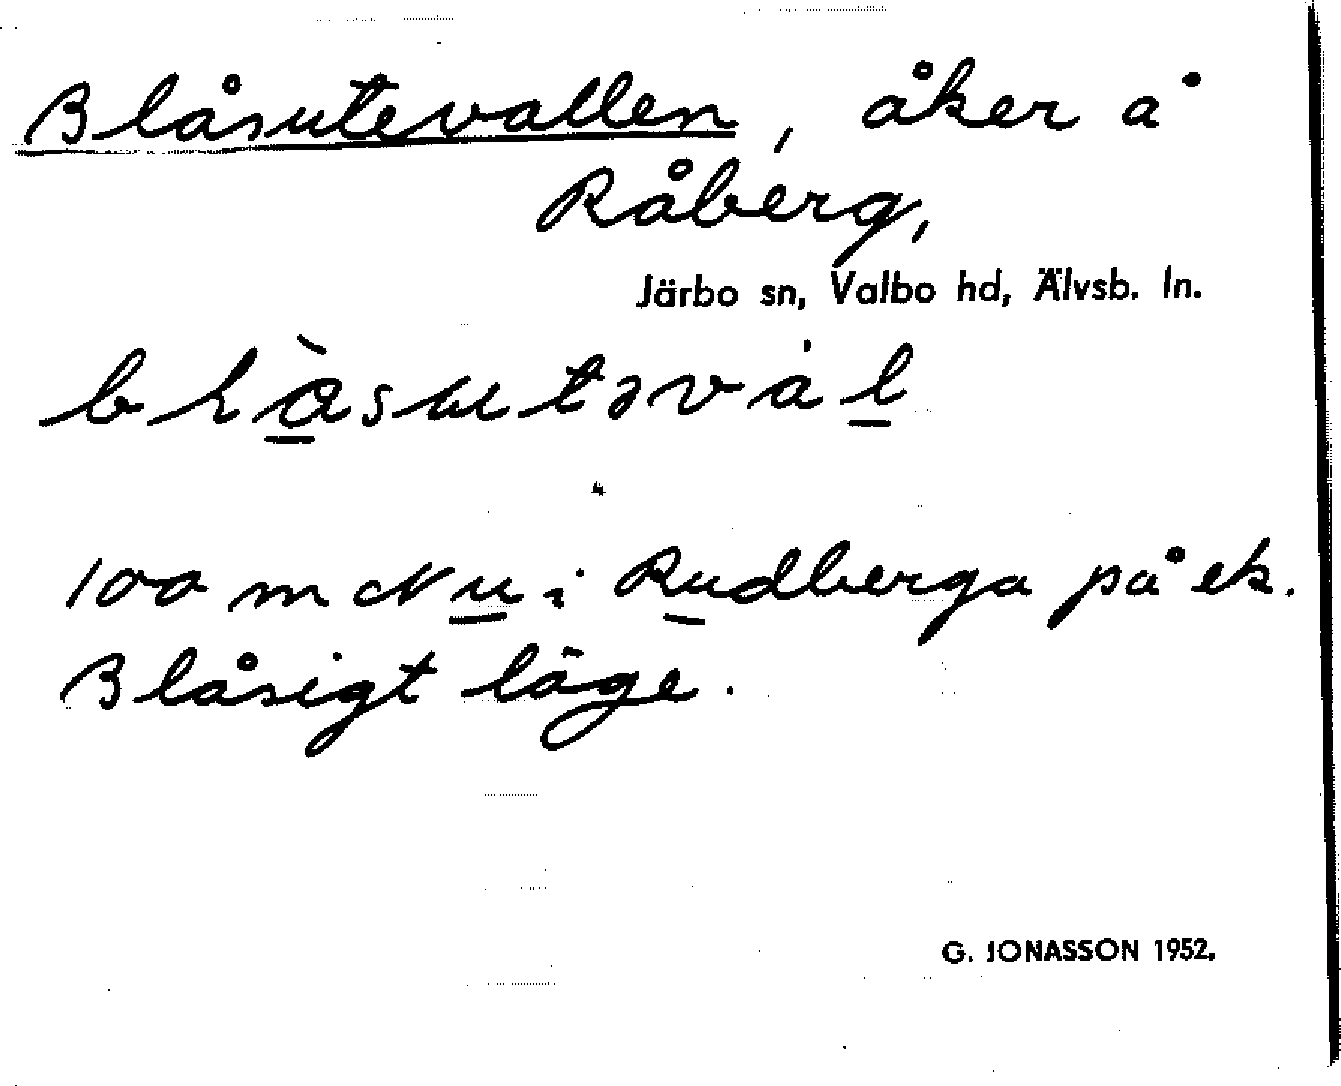 Blåsutevallen, åker å
Råberg,
Järbo sn, Valbo hd, Älvsb. ln.
100 m
u i Rudberga på ek.
Blåsigt läge.
G. JONASSON 1952.